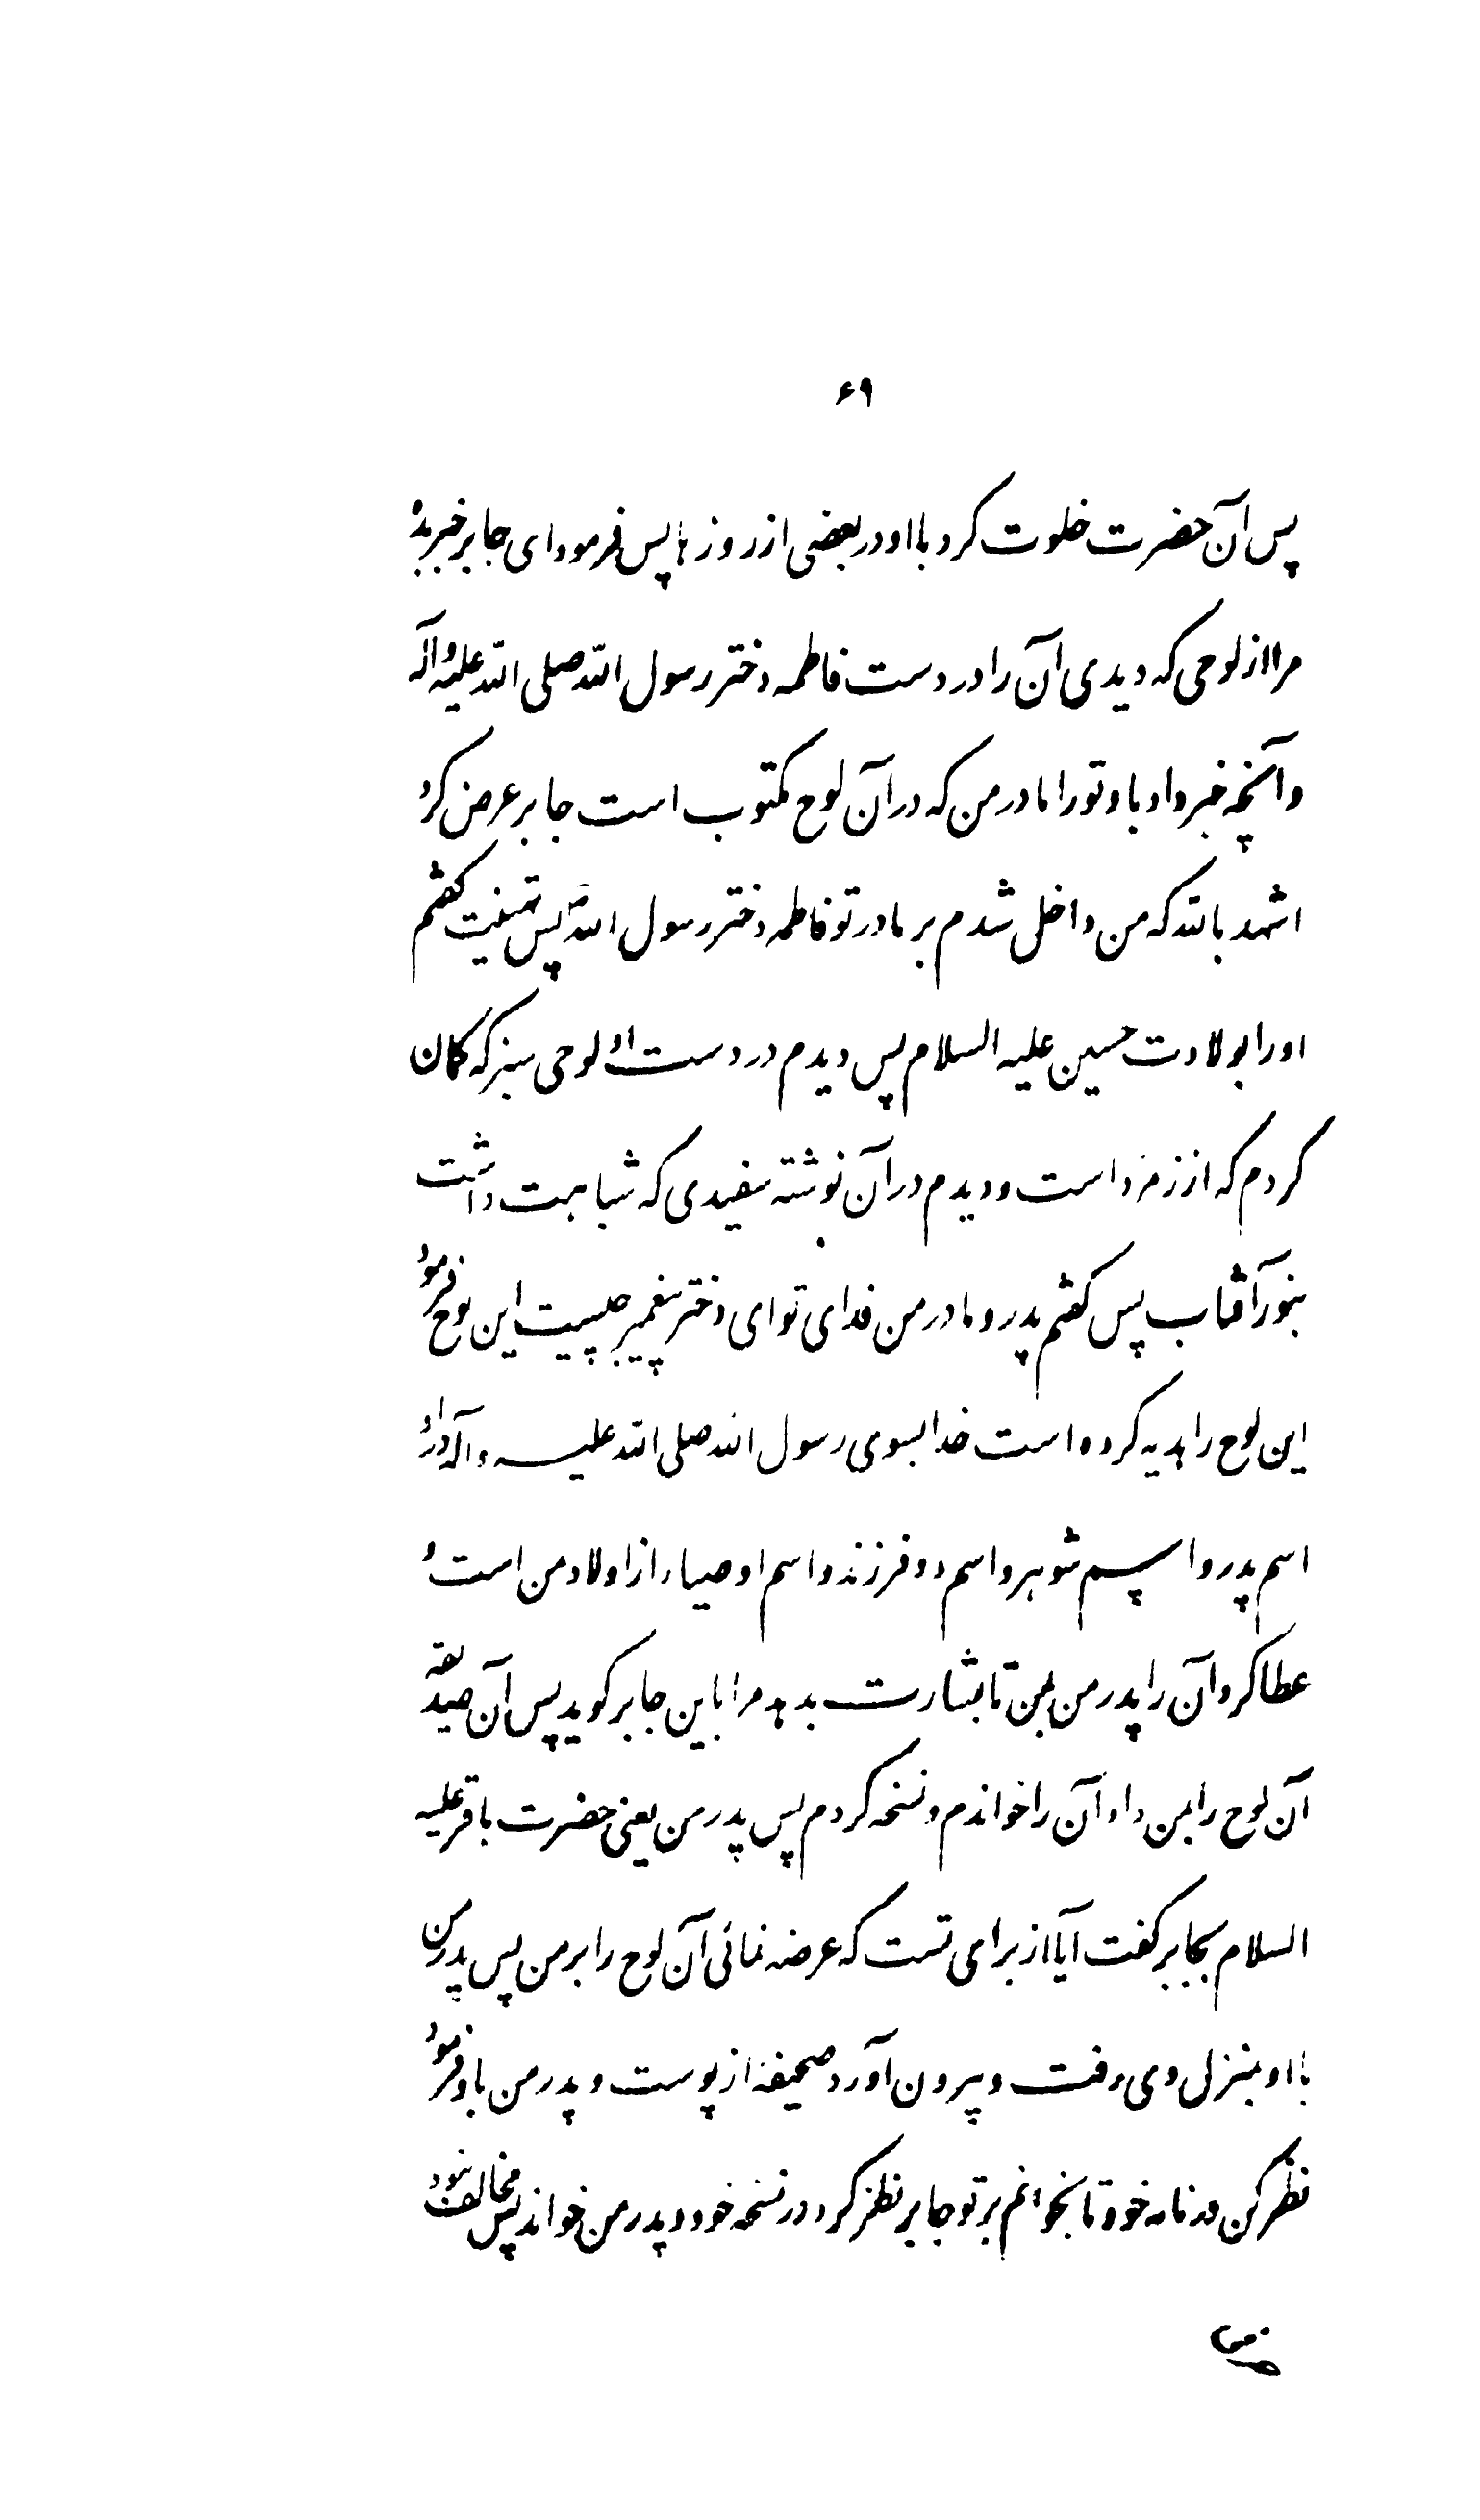 ۶۹
پس آن حضرت خلوت کرد با او در بعضی از روزها پس فرمود ای جابر خبر بده
مرا از لوحی که دیدی آن را در دست فاطمه دختر رسول الله صلی الله علیه و آله
و آنچه خبر داد باو تو را مادر من که در آن لوح مکتوب است جابر عرض کرد
اشهد بالله که من داخل شدم بر مادر تو فاطمه دختر رسول الله پس تهنیت گفتم
او را بولادت حسین علیه السلام پس دیدم در دست او لوحی سبز که گمان
کردم که از زمرد است و دیدم در آن نوشته سفیدی که شباهت داشت
بنور آفتاب پس گفتم پدر و مادر من فدای تو ای دختر پیغمبر چیست این لوح فرمود
این لوح را هدیه کرده است خدا بسوی رسول الله صلی الله علیه و آله در او
اسم پدر و اسم شوهر و اسم دو فرزند و اسم اوصیاء از اولاد من است و
عطا کرد آن را پدر من بمن تا بشارت بدهد مرا باین جابر گوید پس آن صدیقه
آن لوح را بمن داد آن را خواندم و نسخه کردم پس پدر من یعنی حضرت باقر علیه
السلام بجابر گفت آیا از برای تست که عرضه نمائی آن لوح را بر من پس پدر من
با او بمنزل وی رفت و بیرون آورد صحیفه از پوست و پدر من باو فرمود
نظر کن در نامه خود تا بخوانم بر تو جابر نظر کرد در نسخه خود و پدر من خواند پس مخالف نبود